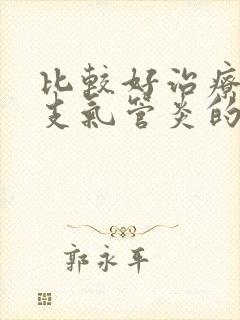 比較好治療
支氣管炎的
郭永平